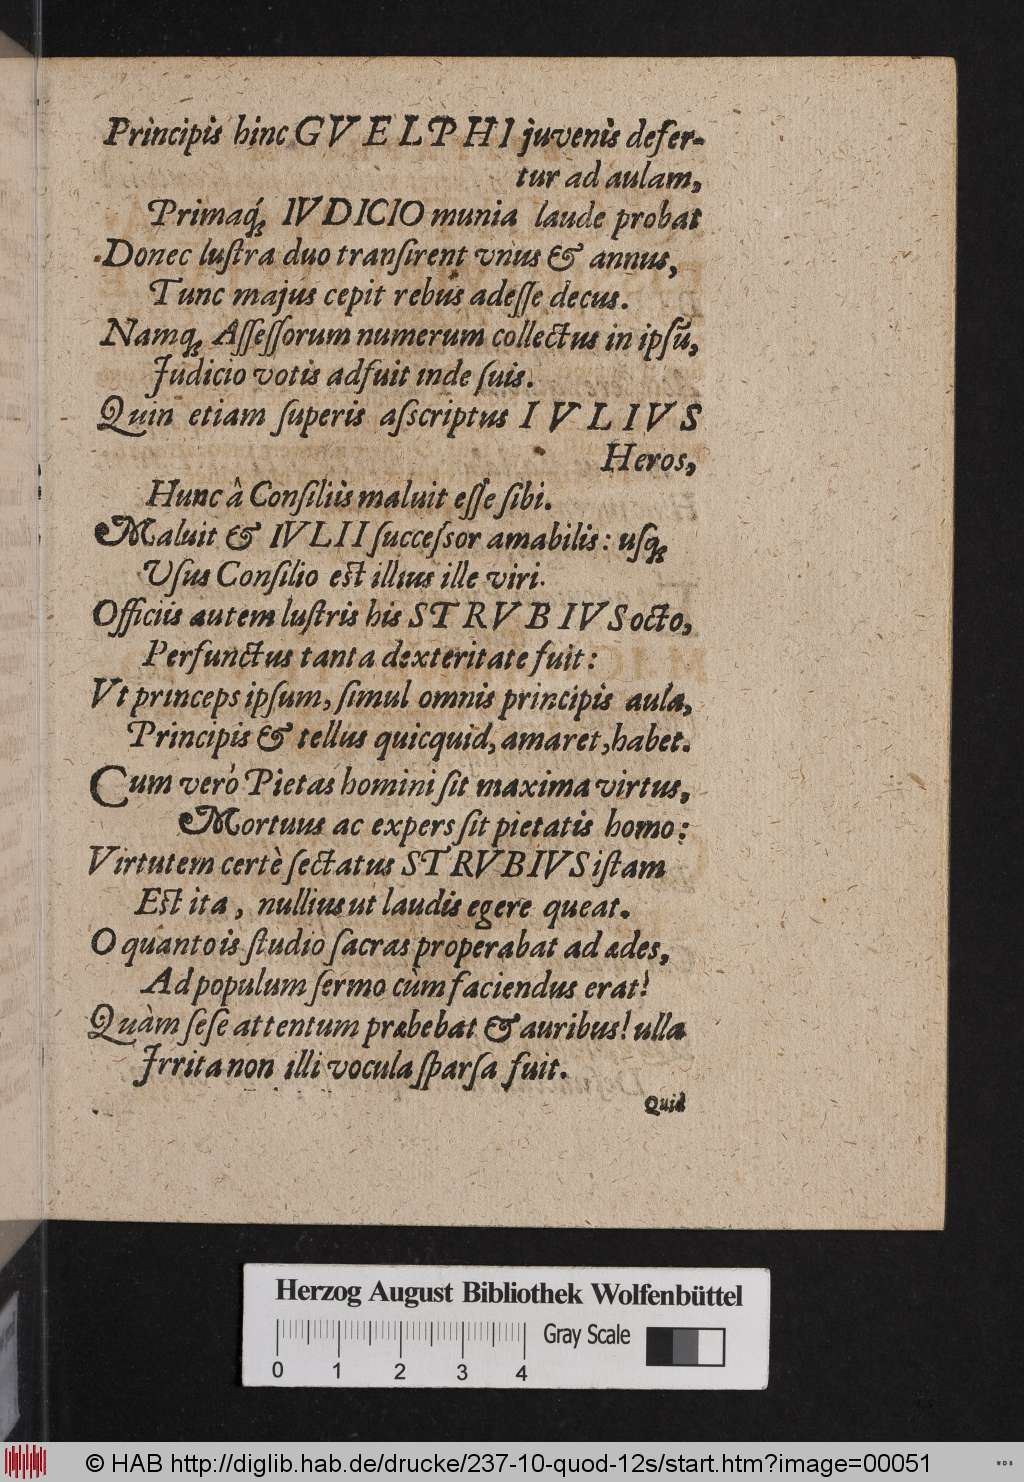 Principis hinc GVELPHI juvenis defer-
tur ad aulam,
Primaq́ꝫ IVDICIO munia laude probat
Donec luſtra duo tranſirent vnus & annus,
Tunc majus cepit rebus adeſſe decus.
Namqꝫ Aſſeſſorum numerum collectus in ipſũ,
Judicio votis adfuit inde ſuis.
Quin etiam ſuperis aſscriptus IVLIVS
Heros,
Hunc â Conſiliis maluit eſſe ſibi.
Maluit & IVLII ſucceſsor amabilis: uſqꝫ
Vſus Conſilio eſt illius ille viri.
Officiis autem luſtris his STRVBIVS octo,
Perfunctus tanta dexteritate fuit:
Vt princeps ipſum, ſimul omnis principis aula,
Principis & tellus quicquid, amaret, habet.
Cum verò Pietas homini ſit maxima virtus,
Mortuus ac expers ſit pietatis homo:
Virtutem certè ſectatus STRVBIVS iſtam
Eſt ita, nullius ut laudis egere queat.
O quanto is ſtudio ſacras properabat ad ædes,
Ad populum ſermo cùm faciendus erat!
Quàm ſeſe attentum præbebat & auribus! ulla
Irrita non illi vocula ſparſa fuit.
Quid
Herzog August Bibliothek Wolfenbüttel
Gray Scale
0 1 2 3 4
© HAB http://diglib.hab.de/drucke/237-10-quod-12s/start.htm?image=00051
WDB